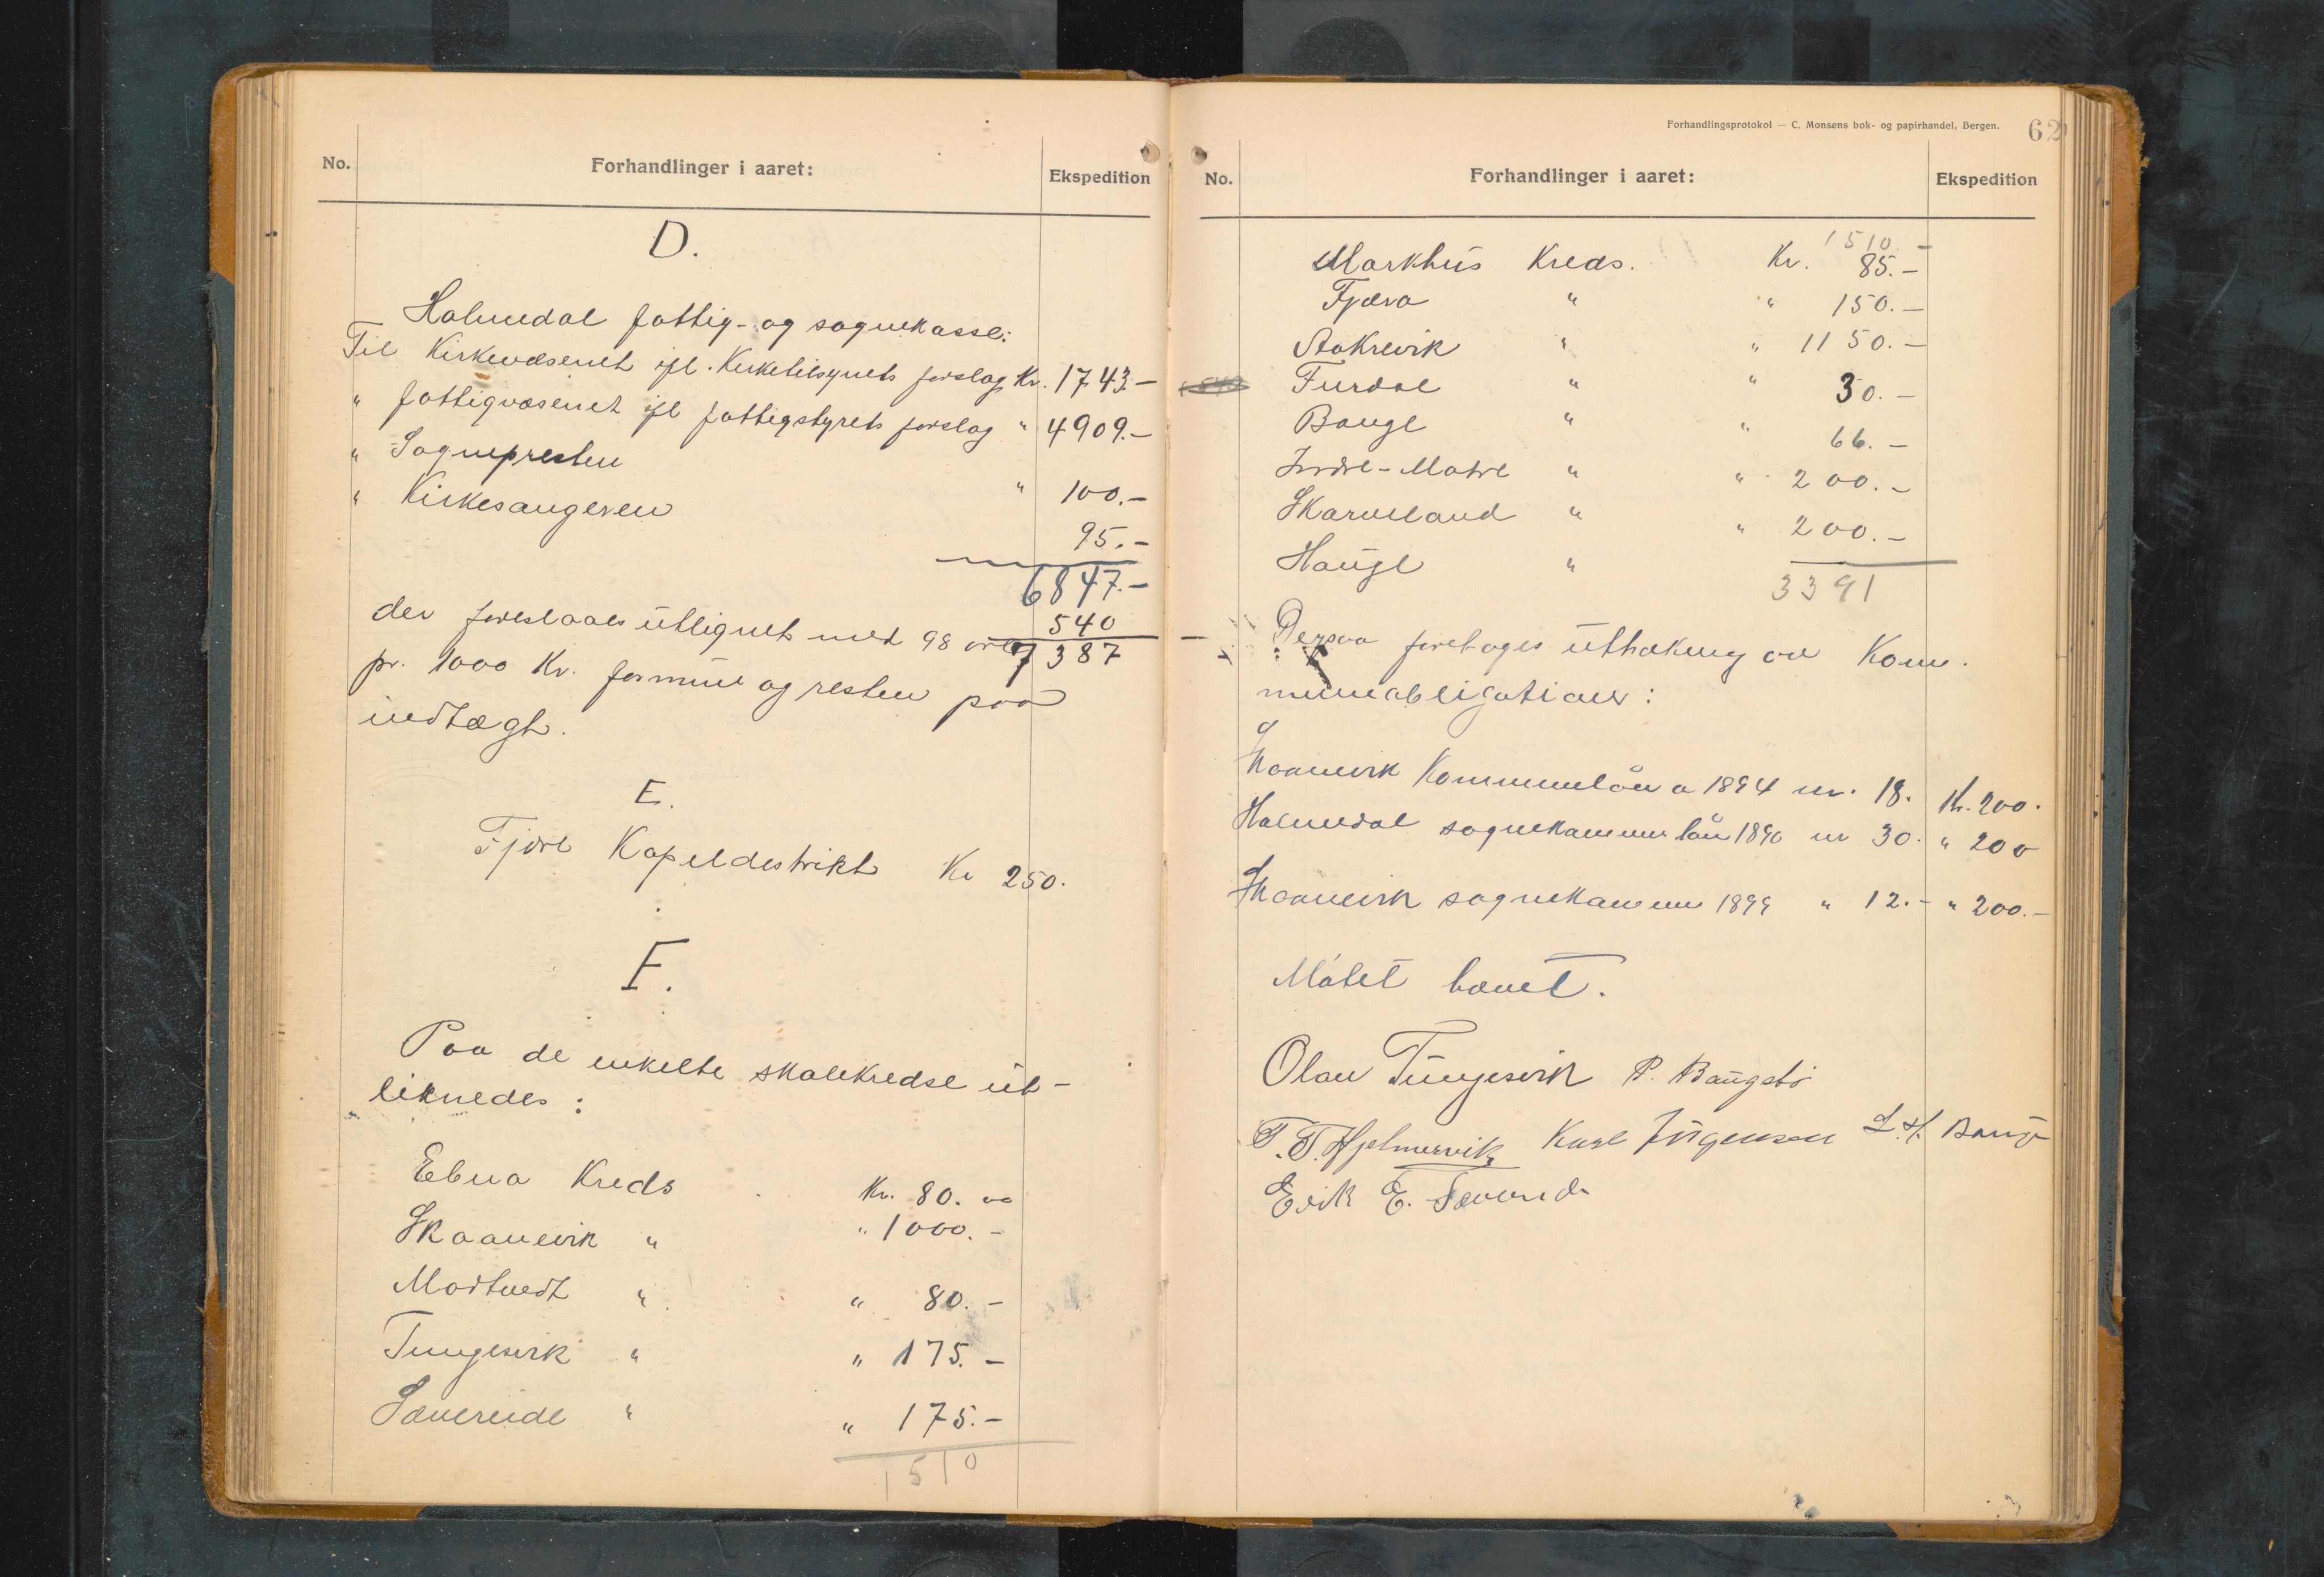 No.
Forhandlinger i aaret:
Ekspedition
D.
Holmedal fattig- og sognekasse:
Til Kirkevæsenet ifl. Kirketilsynets forslag Kr. 1743.-
" fattigvæsenet ifl fattigstyrets forslag " 4909.-
" Sognepresten " 100.-
" Kirkesangeren 95.-
6847.-
540
7387
der foreslaaes utlignet med 98 øre
pr. 1000 Kr. formue og resten paa
indtægt.
E.
Fjære Kapeldestrikt Kr 250.
F.
Paa de enkelte skolekredse ut-
liknedes:
Ebna Kreds Kr. 80. 00
Skaanevik " " 1000.-
Mortvedt " " 80.-
Tungesvik " " 175.-
Sævereide " " 175.-
1510
Forhandlingsprotokol — C. Monsens bok- og papirhandel, Bergen.
62
No.
Forhandlinger i aaret:
Ekspedition
1510 -
Markhus Kreds. Kr. 85.-
Fjæra " " 150.-
Aakrevik " " 1150.-
Furdal " " 30.-
Bauge " " 66.-
Indre-Matre " " 200.-
Skarveland " " 200.-
Hauge "
3391
Dersaa foretoges uttrækning av Kom-
muneobligationer:
Skaanevik Kommunelån a 1894 nr. 18. Kr. 200.
Holmedal sognekommunelån 1890 nr 30. " 200
Skaanevik sognekommune 1899 " 12.- " 200.-
Møtet hævet.
Olav Tungesvik P. Baugstø
T. T. Hjelmervik Karl Jørgensen L. H. Bauge
Erik E. Sævereide